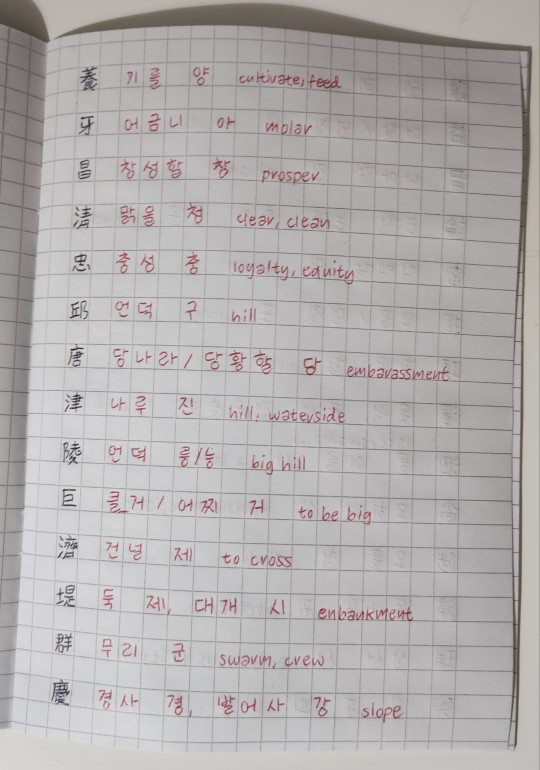 養 기를 양 cultivate, feed
牙 어금니 아 molar
昌 창성할 창 prosper
淸 맑을 청 clear, clean
忠 충성 충 loyalty, equity
邱 언덕 구 hill
唐 당나라/당황할 당 embarassment
津 나루 진 hill, waterside
陵 언덕 릉/능 big hill
巨 클 거/어찌 거 to be big
濟 건널 제 to cross
堤 둑 제, 대개 시 enbankment
群 무리 군 swarm, crew
慶 경사 경, 발어사 강 slope